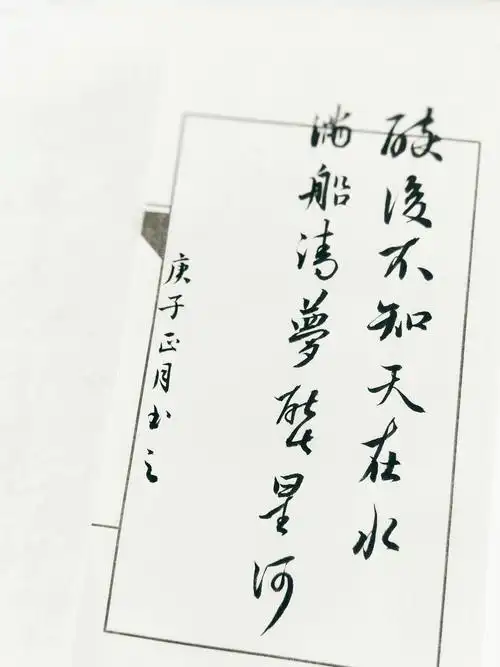 醉後不知天在水
滿船清夢壓星河
庚子正月书之